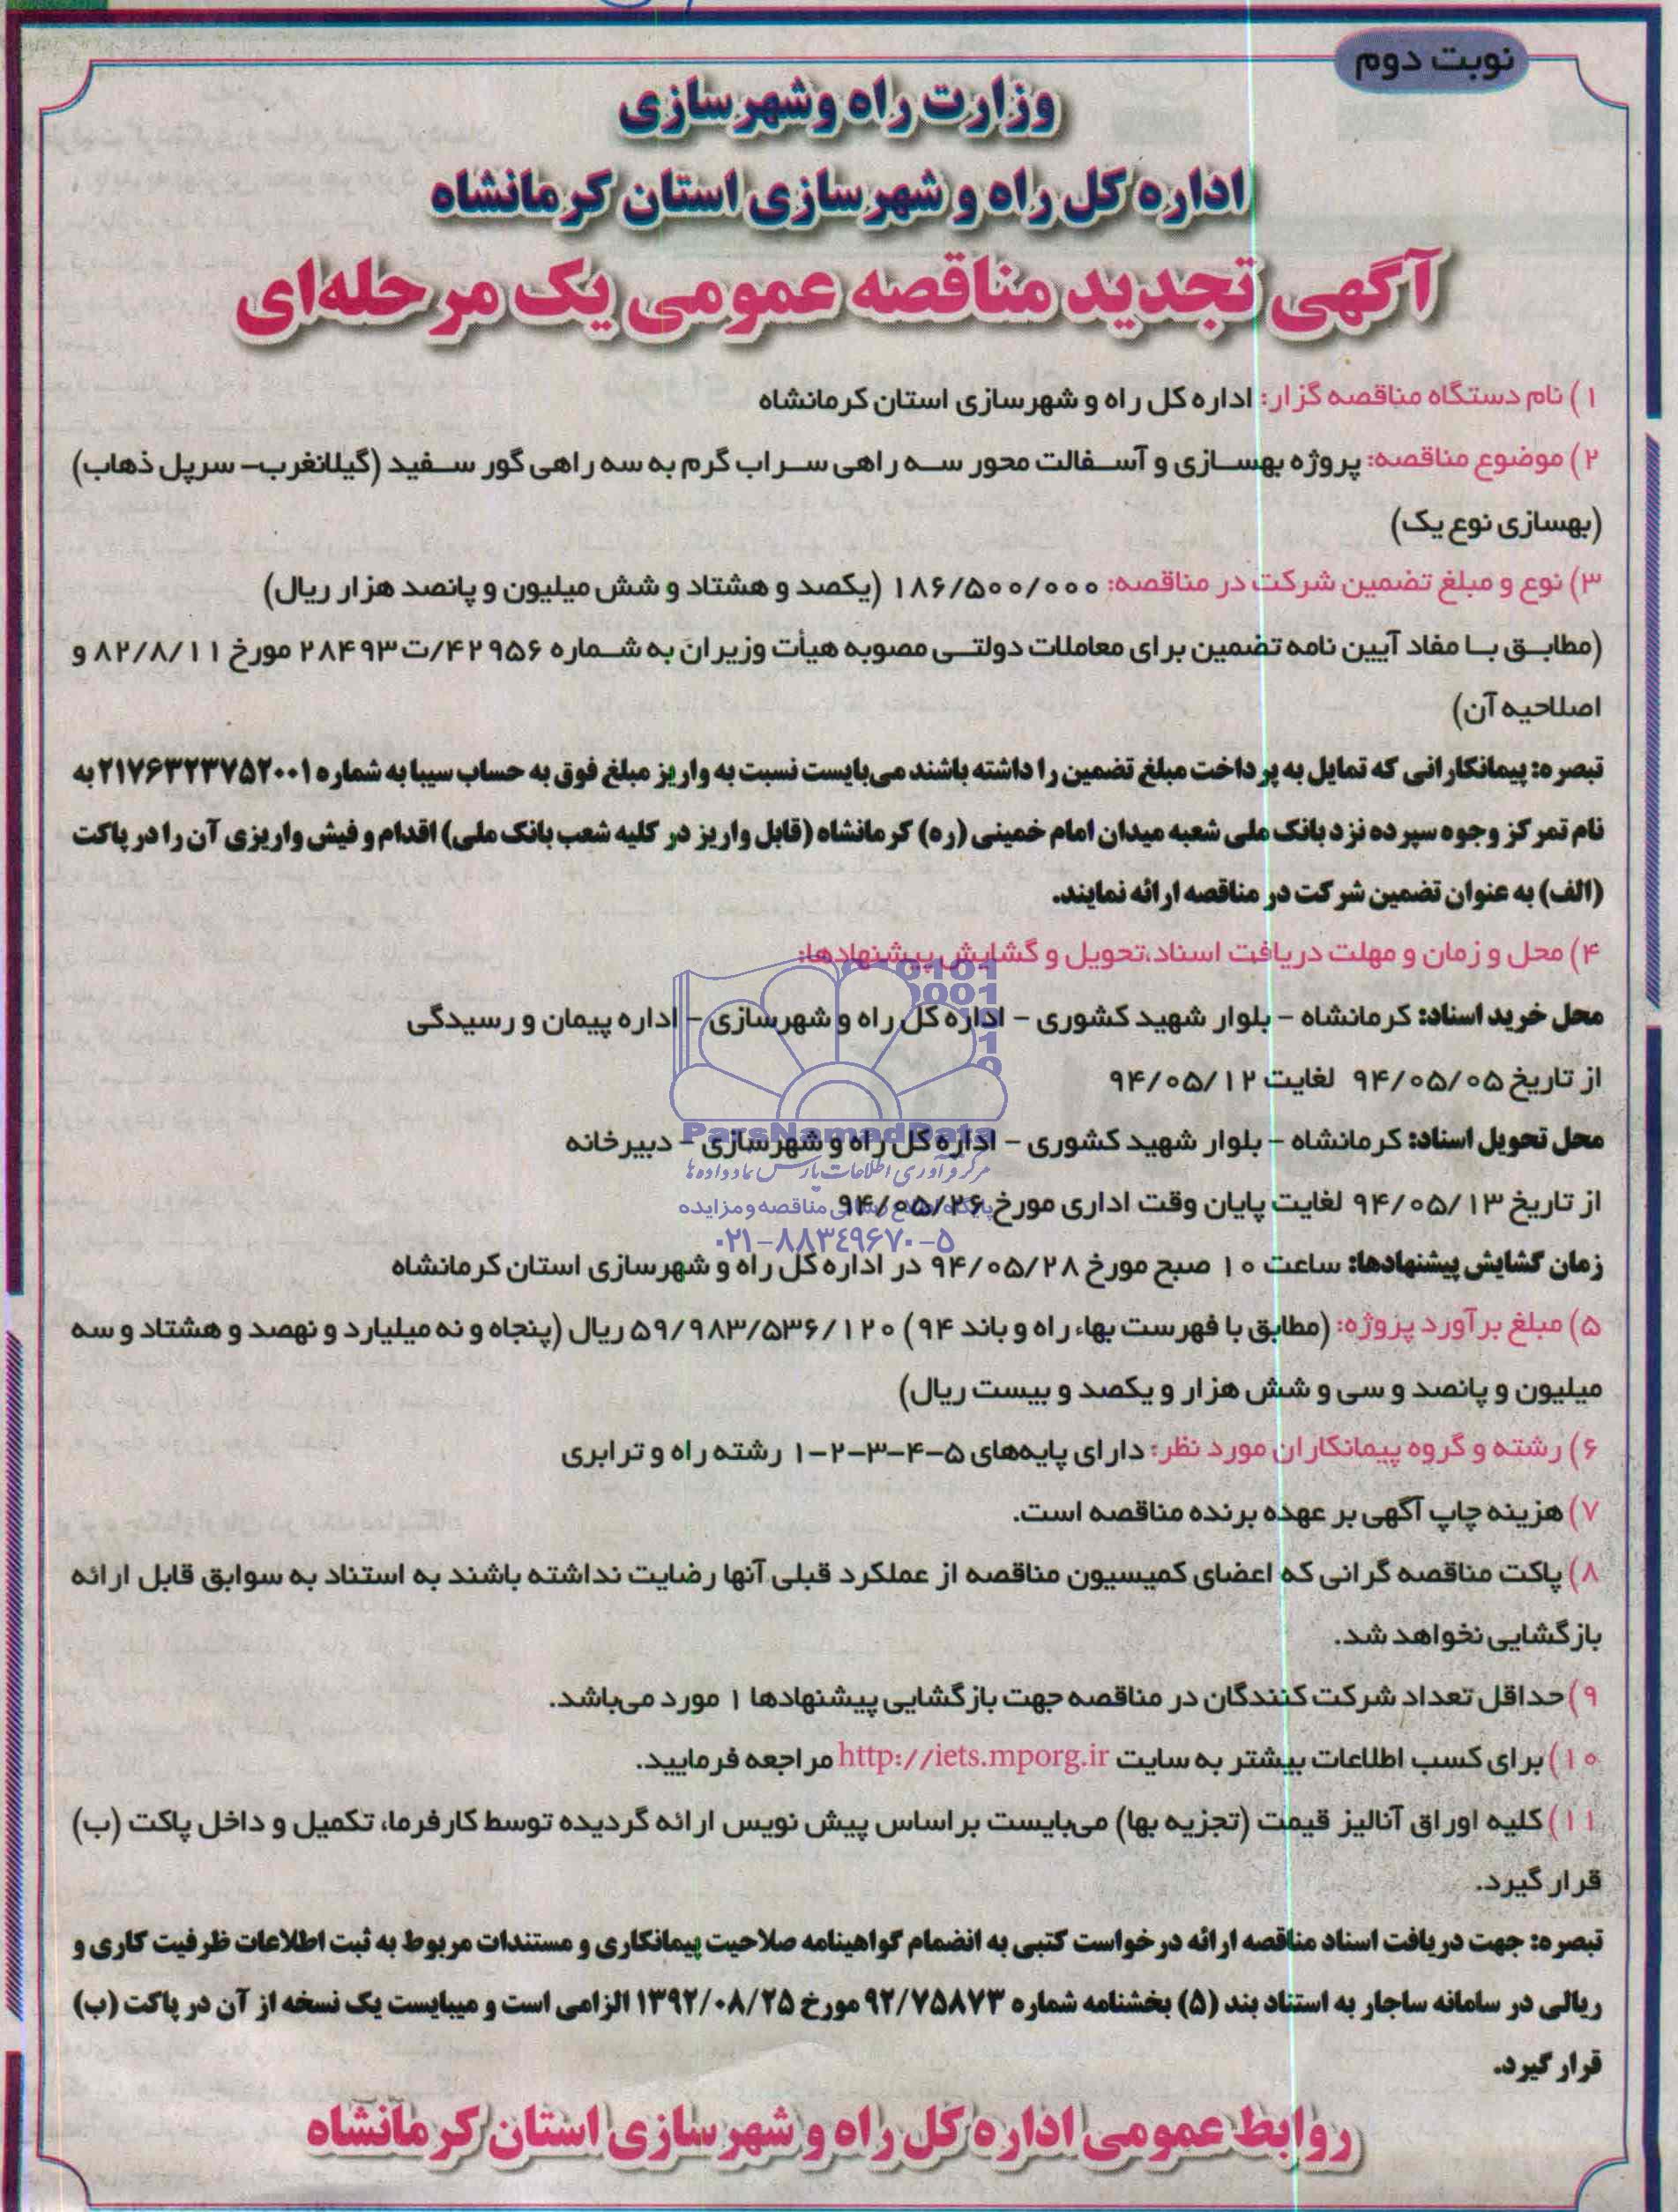 نوبت دوم
وزارت راه وشهرسازی
اداره کل راه و شهرسازی استان کرمانشاه
آگهی تجدید مناقصه عمومی یک مرحله‌ای
۱) نام دستگاه مناقصه گزار: اداره کل راه و شهرسازی استان کرمانشاه
۲) موضوع مناقصه: پروژه بهسازی و آسفالت محور سه راهی سراب گرم به سه راهی گور سفید (گیلانغرب- سرپل ذهاب)
(بهسازی نوع یک)
۳) نوع و مبلغ تضمین شرکت در مناقصه: ۱۸۶/۵۰۰/۰۰۰ (یکصد و هشتاد و شش میلیون و پانصد هزار ریال)
(مطابق با مفاد آیین نامه تضمین برای معاملات دولتی مصوبه هیأت وزیران به شماره ۴۲۹۵۶/ت۲۸۴۹۳ مورخ ۸۲/۸/۱۱ و
اصلاحیه آن)
تبصره: پیمانکارانی که تمایل به پرداخت مبلغ تضمین را داشته باشند می‌بایست نسبت به واریز مبلغ فوق به حساب سیبا به شماره ۲۱۷۶۳۲۳۷۵۲۰۰۱ به
نام تمرکز وجوه سپرده نزد بانک ملی شعبه میدان امام خمینی (ره) کرمانشاه (قابل واریز در کلیه شعب بانک ملی) اقدام و فیش واریزی آن را در پاکت
(الف) به عنوان تضمین شرکت در مناقصه ارائه نمایند.
۴) محل و زمان و مهلت دریافت اسناد،تحویل و گشایش پیشنهادها:
محل خرید اسناد: کرمانشاه - بلوار شهید کشوری - اداره کل راه و شهرسازی - اداره پیمان و رسیدگی
از تاریخ ۹۴/۰۵/۰۵ لغایت ۹۴/۰۵/۱۲
محل تحویل اسناد: کرمانشاه - بلوار شهید کشوری - اداره کل راه و شهرسازی - دبیرخانه
ParsNamadData
مرکز فرآوری اطلاعات پارس نماد داده ها
از تاریخ ۹۴/۰۵/۱۳ لغایت پایان وقت اداری مورخ ۹۴/۰۵/۲۶
مناقصه و مزایده
۰۲۱-۸۸۳۴۹۶۷۰-۵
زمان گشایش پیشنهادها: ساعت ۱۰ صبح مورخ ۹۴/۰۵/۲۸ در اداره کل راه و شهرسازی استان کرمانشاه
۵) مبلغ برآورد پزوژه: (مطابق با فهرست بهاء راه و باند ۹۴) ۵۹/۹۸۳/۵۳۶/۱۲۰ ریال (پنجاه و نه میلیارد و نهصد و هشتاد و سه
میلیون و پانصد و سی و شش هزار و یکصد و بیست ریال)
۶) رشته و گروه پیمانکاران مورد نظر: دارای پایه‌های ۵-۴-۳-۲-۱ رشته راه و ترابری
۷) هزینه چاپ آگهی بر عهده برنده مناقصه است.
۸) پاکت مناقصه گرانی که اعضای کمیسیون مناقصه از عملکرد قبلی آنها رضایت نداشته باشند به استناد به سوابق قابل ارائه
بازگشایی نخواهد شد.
۹) حداقل تعداد شرکت کنندگان در مناقصه جهت بازگشایی پیشنهادها ۱ مورد می‌باشد.
۱۰) برای کسب اطلاعات بیشتر به سایت http://iets.mporg.ir مراجعه فرمایید.
۱۱) کلیه اوراق آنالیز قیمت (تجزیه بها) می‌بایست براساس پیش نویس ارائه گردیده توسط کارفرما، تکمیل و داخل پاکت (ب)
قرار گیرد.
تبصره: جهت دریافت اسناد مناقصه ارائه درخواست کتبی به انضمام گواهینامه صلاحیت پیمانکاری و مستندات مربوط به ثبت اطلاعات ظرفیت کاری و
ریالی در سامانه ساجار به استناد بند (۵) بخشنامه شماره ۹۲/۷۵۸۷۳ مورخ ۱۳۹۲/۰۸/۲۵ الزامی است و میبایست یک نسخه از آن در پاکت (ب)
قرار گیرد.
روابط عمومی اداره کل راه و شهرسازی استان کرمانشاه